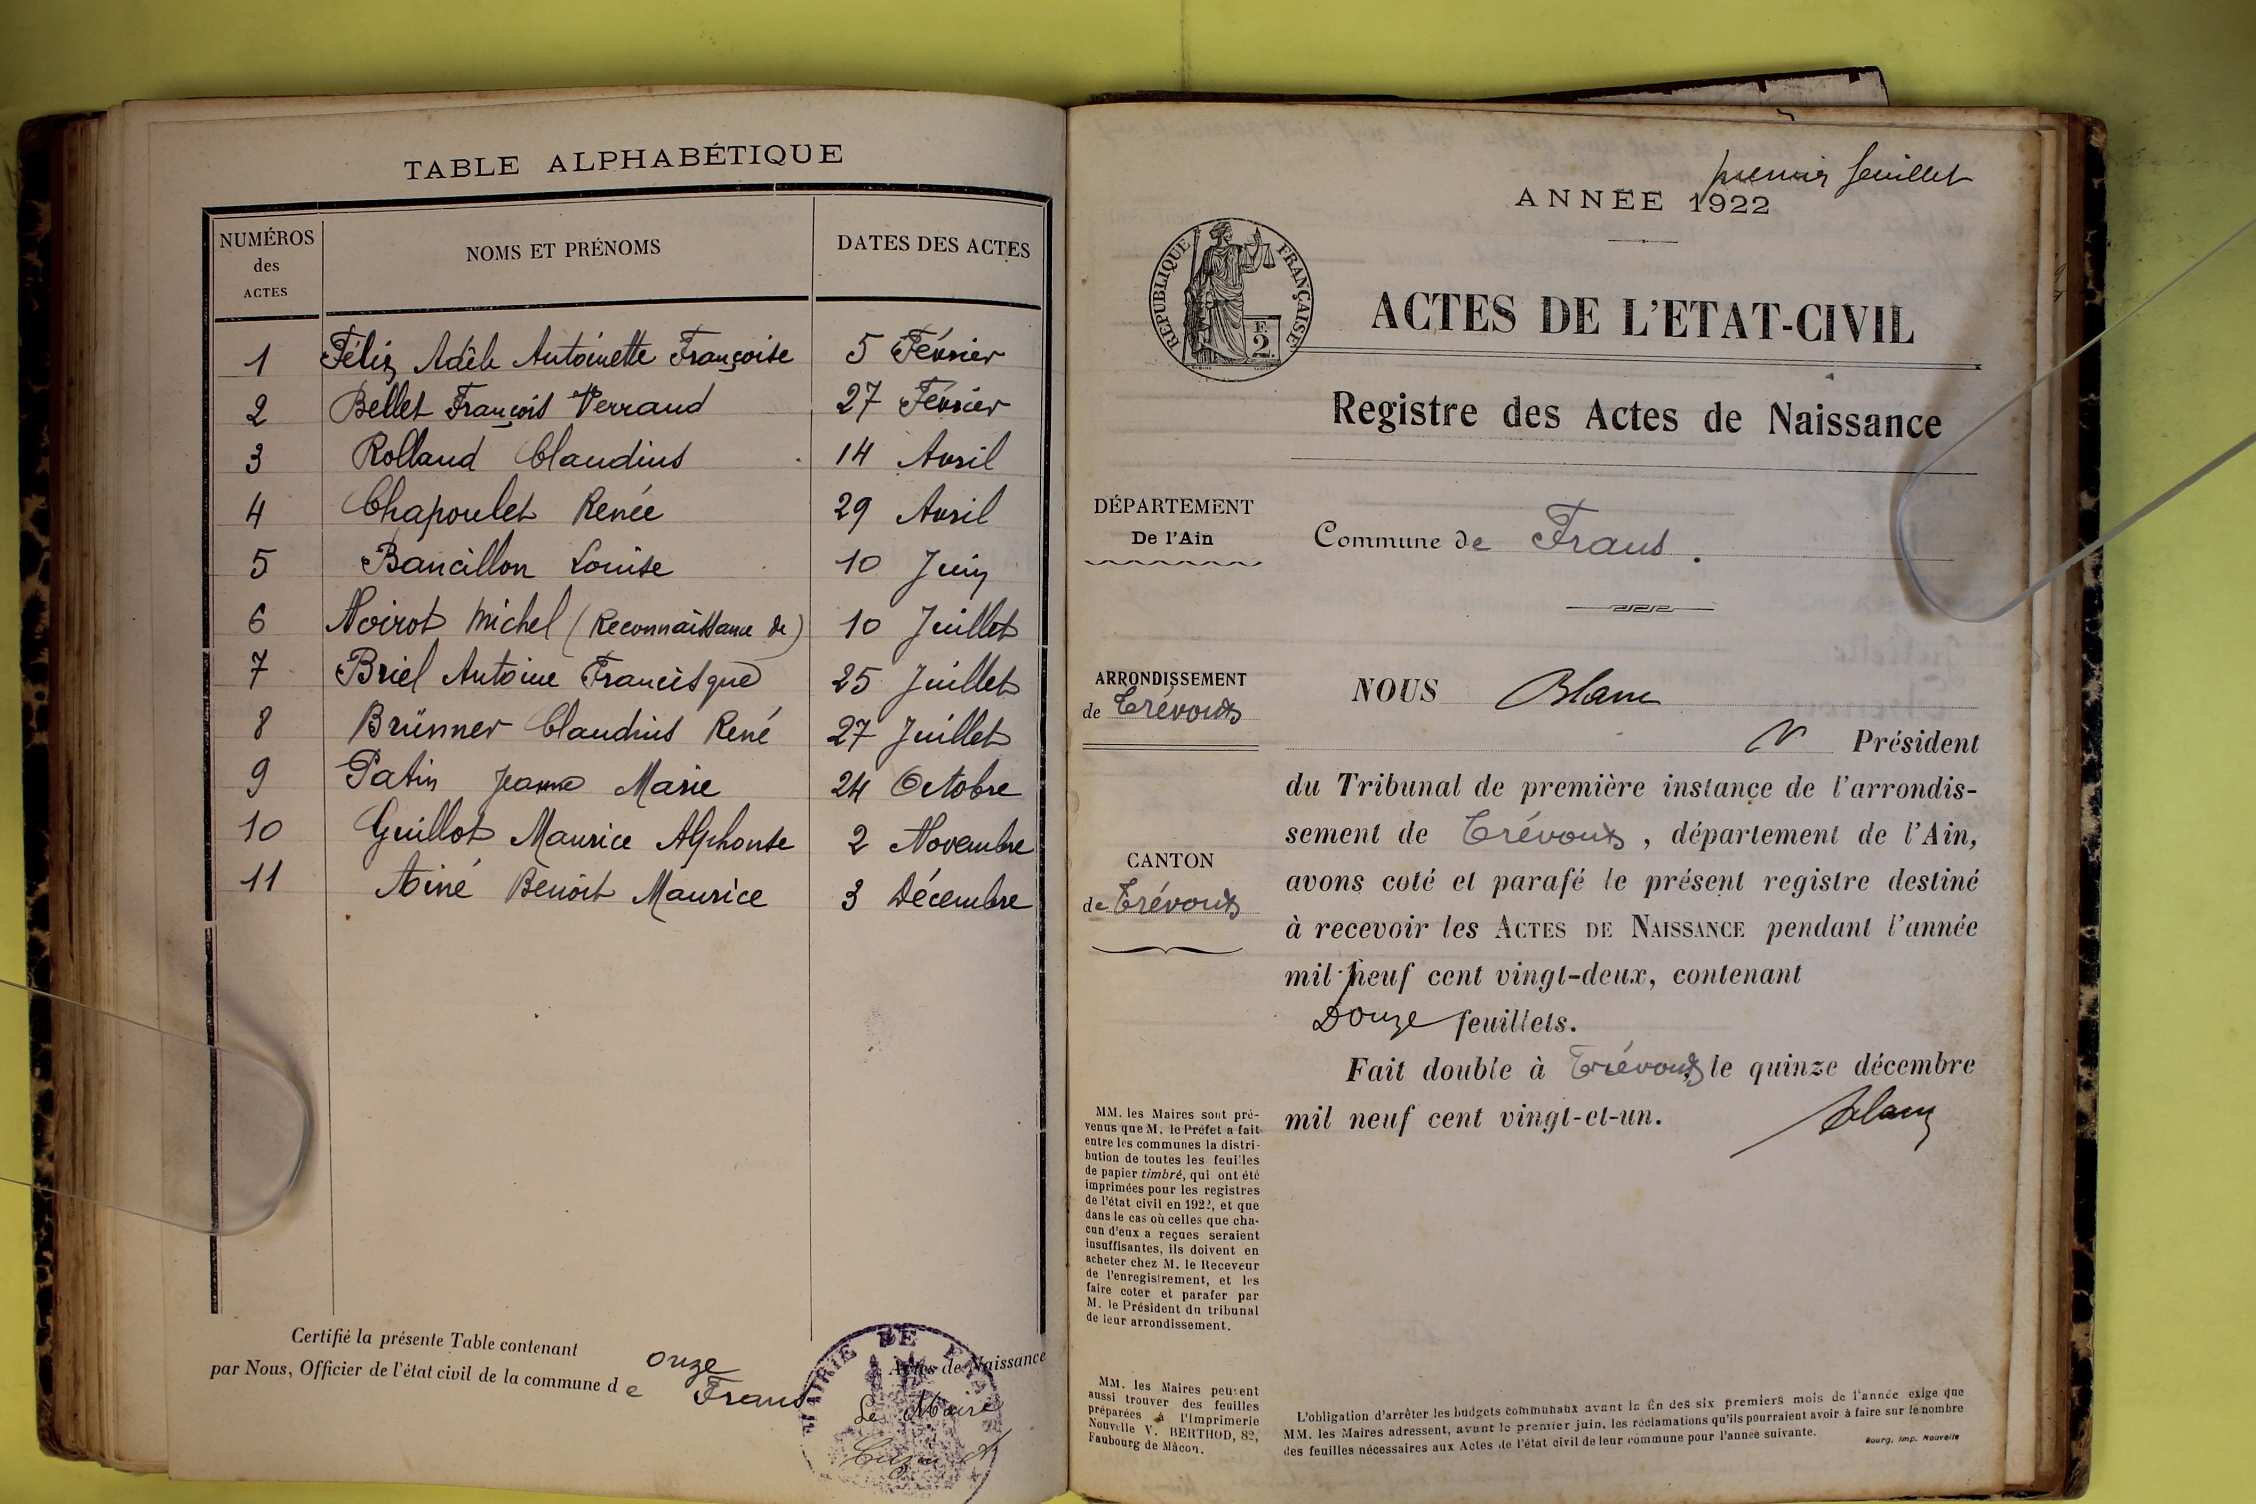 TABLE ALPHABÉTIQUE
NUMÉROS des ACTES NOMS ET PRÉNOMS DATES DES ACTES
1 Féliz Adèle Antoinette Françoise 5 Février
2 Bellet François Verraud 27 Février
3 Rolland Claudius 14 Avril
4 Chapoulet Renée 29 Avril
5 Bancillon Louise 10 Juin
6 Noirot Michel (Reconnaissance de) 10 Juillet
7 Briel Antoine Francisque 25 Juillet
8 Brünner Claudius René 27 Juillet
9 Patin Jeanne Marie 24 Octobre
10 Guillot Maurice Alphonse 2 Novembre
11 Ainé Benoit Maurice 3 Décembre
Certifié la présente Table contenant onze Actes de Naissance
par Nous, Officier de l'état civil de la commune de Frans
Le Maire
MAIRIE DE
premier feuillet
ANNÉE 1922
RÉPUBLIQUE FRANÇAISE
F.
2.
ACTES DE L'ETAT-CIVIL
Registre des Actes de Naissance
DÉPARTEMENT
De l'Ain
Commune de Frans.
ARRONDISSEMENT
de Trévoux
CANTON
de Trévoux
NOUS Blanc
Président
du Tribunal de première instance de l'arrondis-
sement de Trévoux, département de l'Ain,
avons coté et parafé le présent registre destiné
à recevoir les ACTES DE NAISSANCE pendant l'année
mil neuf cent vingt-deux, contenant
Douze feuillets.
Fait double à Trévoux le quinze décembre
mil neuf cent vingt-et-un.
Blanc
MM. les Maires sont pré-
venus que M. le Préfet a fait
entre les communes la distri-
bution de toutes les feuilles
de papier timbré, qui ont été
imprimées pour les registres
de l'état civil en 1922, et que
dans le cas où celles que cha-
cun d'eux a reçues seraient
insuffisantes, ils doivent en
acheter chez M. le Receveur
de l'enregistrement, et les
faire coter et parafer par
M. le Président du tribunal
de leur arrondissement.
MM. les Maires peuvent
aussi trouver des feuilles
préparées à l'Imprimerie
Nouvelle V. BERTHOD, 82,
Faubourg de Mâcon.
L'obligation d'arrêter les budgets communaux avant la fin des six premiers mois de l'année exige que
MM. les Maires adressent, avant le premier juin, les réclamations qu'ils pourraient avoir à faire sur le nombre
des feuilles nécessaires aux Actes de l'état civil de leur commune pour l'année suivante.
Bourg, Imp. Nouvelle